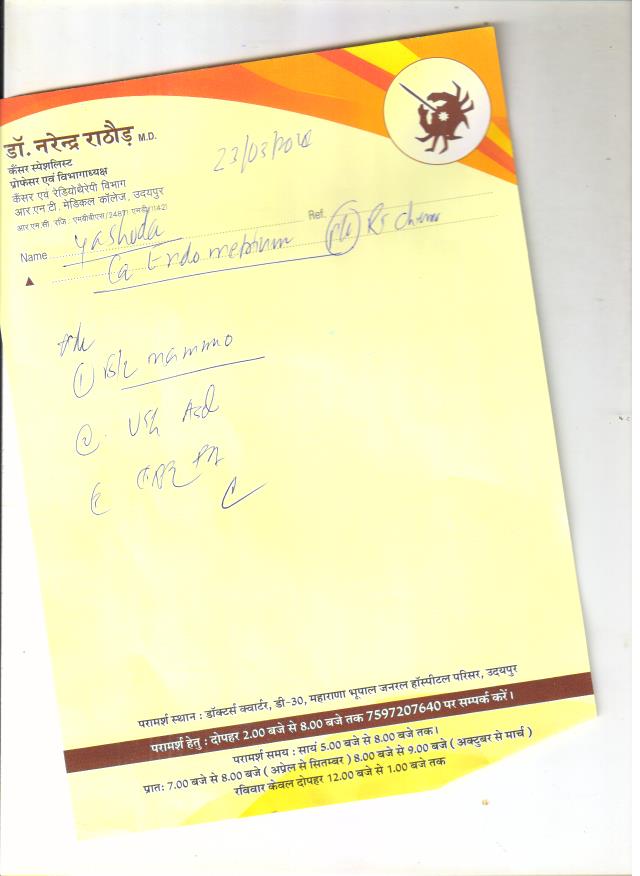 डॉ. नरेन्द्र राठौड़ M.D.
कैंसर स्पेशलिस्ट
प्रोफेसर एवं विभागाध्यक्ष
कैंसर एवं रेडियोथेरेपी विभाग
आर.एन.टी. मेडिकल कॉलेज, उदयपुर
आर.एम.सी. रजि. एमबीबीएस/2487/ एमडी/1142)
23/03/
Name Yashoda
Ref.
Ca Endometrium
① mammo
②. USG
परामर्श स्थान : डॉक्टर्स क्वार्टर, डी-30, महाराणा भूपाल जनरल हॉस्पीटल परिसर, उदयपुर
परामर्श हेतु : दोपहर 2.00 बजे से 8.00 बजे तक 7597207640 पर सम्पर्क करें।
परामर्श समय : सायं 5.00 बजे से 8.00 बजे तक।
प्रात: 7.00 बजे से 8.00 बजे ( अप्रेल से सितम्बर ) 8.00 बजे से 9.00 बजे ( अक्टुबर से मार्च )
रविवार केवल दोपहर 12.00 बजे से 1.00 बजे तक